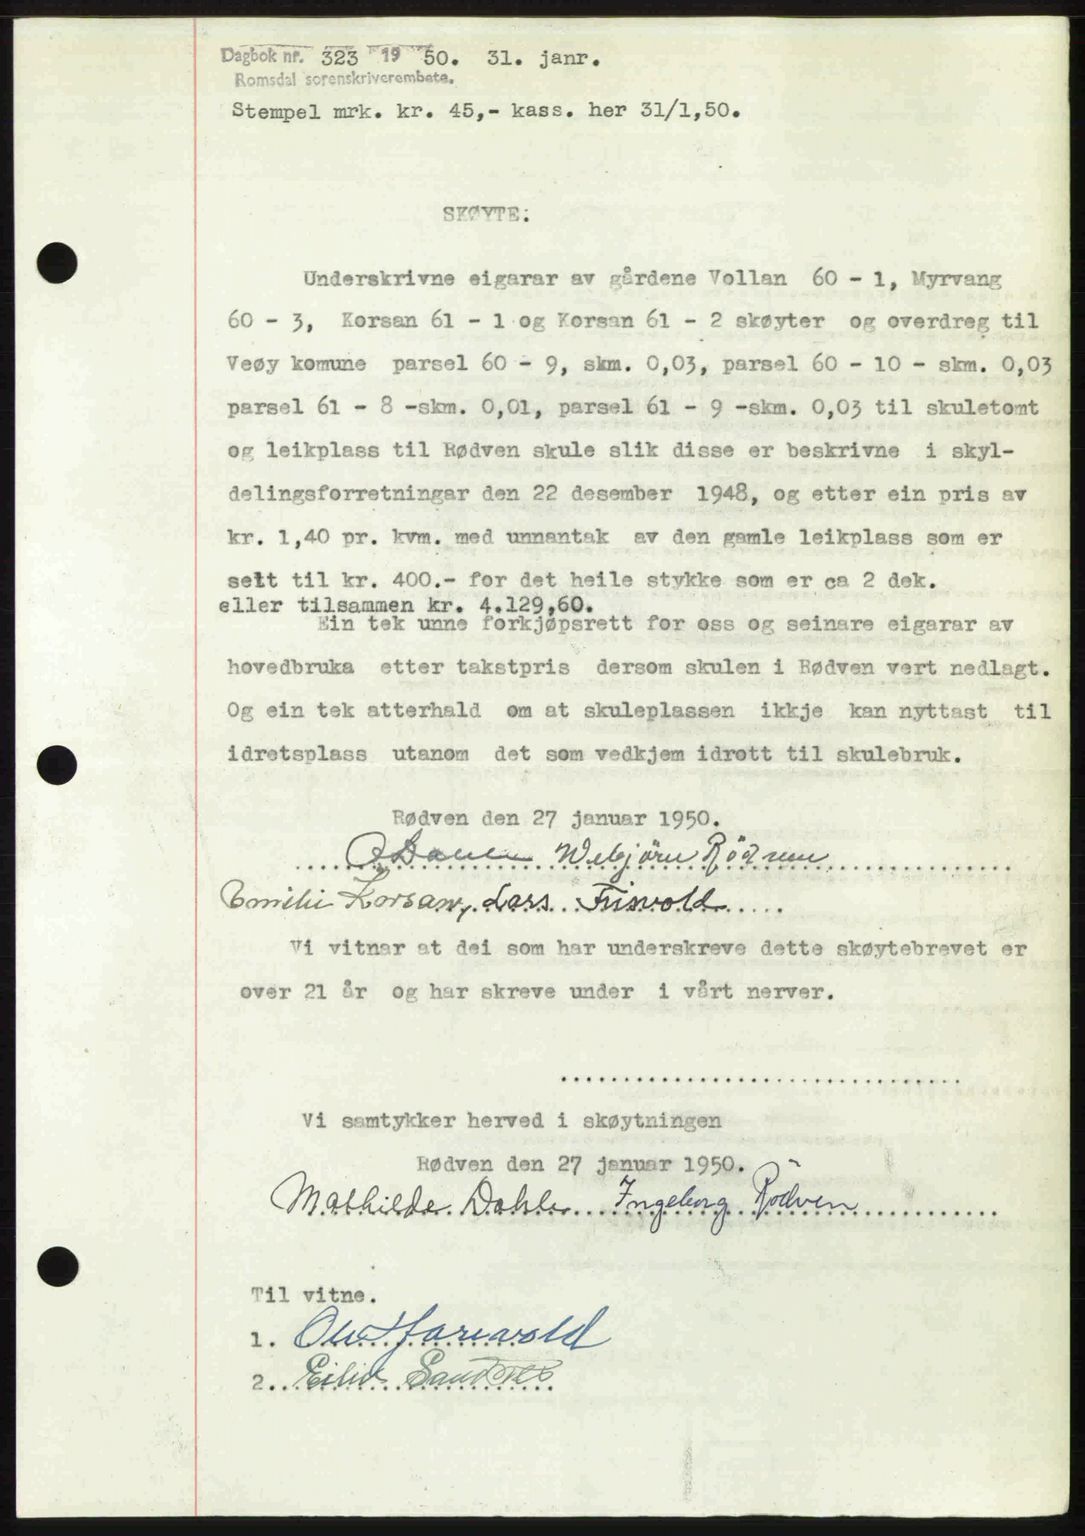 Dagbok nr. 323 19 50. 31. janr.
Romsdal sorenskriverembete.
Stempel mrk. kr. 45,- kass. her 31/1,50.
SKØYTE:
Underskrivne eigarar av gårdene Vollan 60 - 1, Myrvang
60 - 3, Korsan 61 - 1 og Korsan 61 - 2 skøyter og overdreg til
Veøy komune parsel 60 - 9, skm. 0,03, parsel 60 - 10 - skm. 0,03
parsel 61 - 8 -skm. 0,01, parsel 61 - 9 -skm. 0,03 til skuletomt
og leikplass til Rødven skule slik disse er beskrivne i skyl-
delingsforretningar den 22 desember 1948, og etter ein pris av
kr. 1,40 pr. kvm. med unnantak av den gamle leikplass som er
selt til kr. 400.- for det heile stykke som er ca 2 dek.
eller tilsammen kr. 4.129,60.
Ein tek unne forkjøpsrett for oss og seinare eigarar av
hovedbruka etter takstpris dersom skulen i Rødven vert nedlagt.
Og ein tek atterhald om at skuleplassen ikkje kan nyttast til
idretsplass utanom det som vedkjem idrott til skulebruk.
Rødven den 27 januar 1950.
Webjörn Rödven
Emilie Korsan, Lars Frisvold
Vi vitnar at dei som har underskreve dette skøytebrevet er
over 21 år og har skreve under i vårt nerver.
Vi samtykker herved i skøytningen
Rødven den 27 januar 1950.
Mathilde Dahle Ingeborg Rödven
Til vitne.
1. Ole
2. Eilid